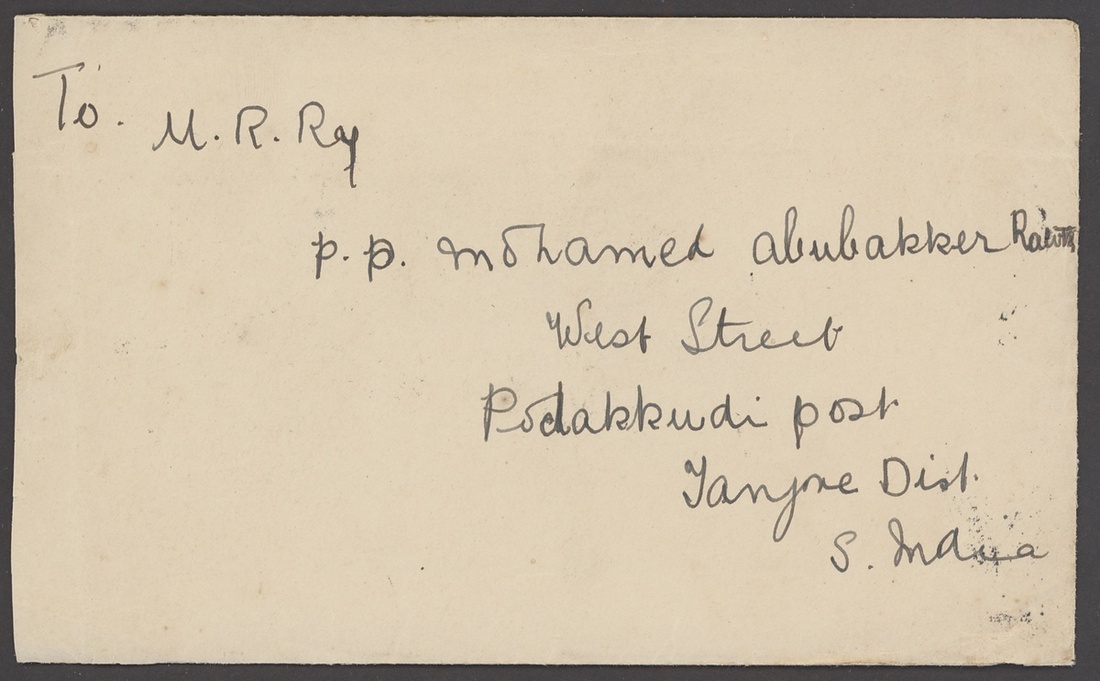 To.
M. R. Ry
P. P. Mohamed abubakker
West Street
Podakkudi post
Tanjore Dist.
S. India